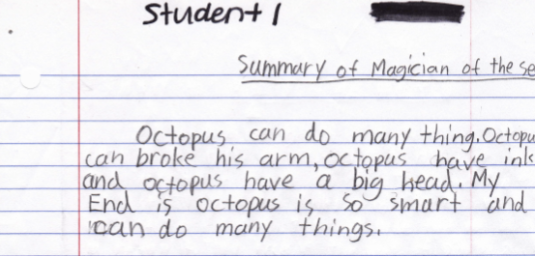 Student 1
Summary of Magician of the se
Octopus can do many thing. Octopu
can broke his arm, octopus have ink
and octopus have a big head. My
End is octopus is so smart and
can do many things.